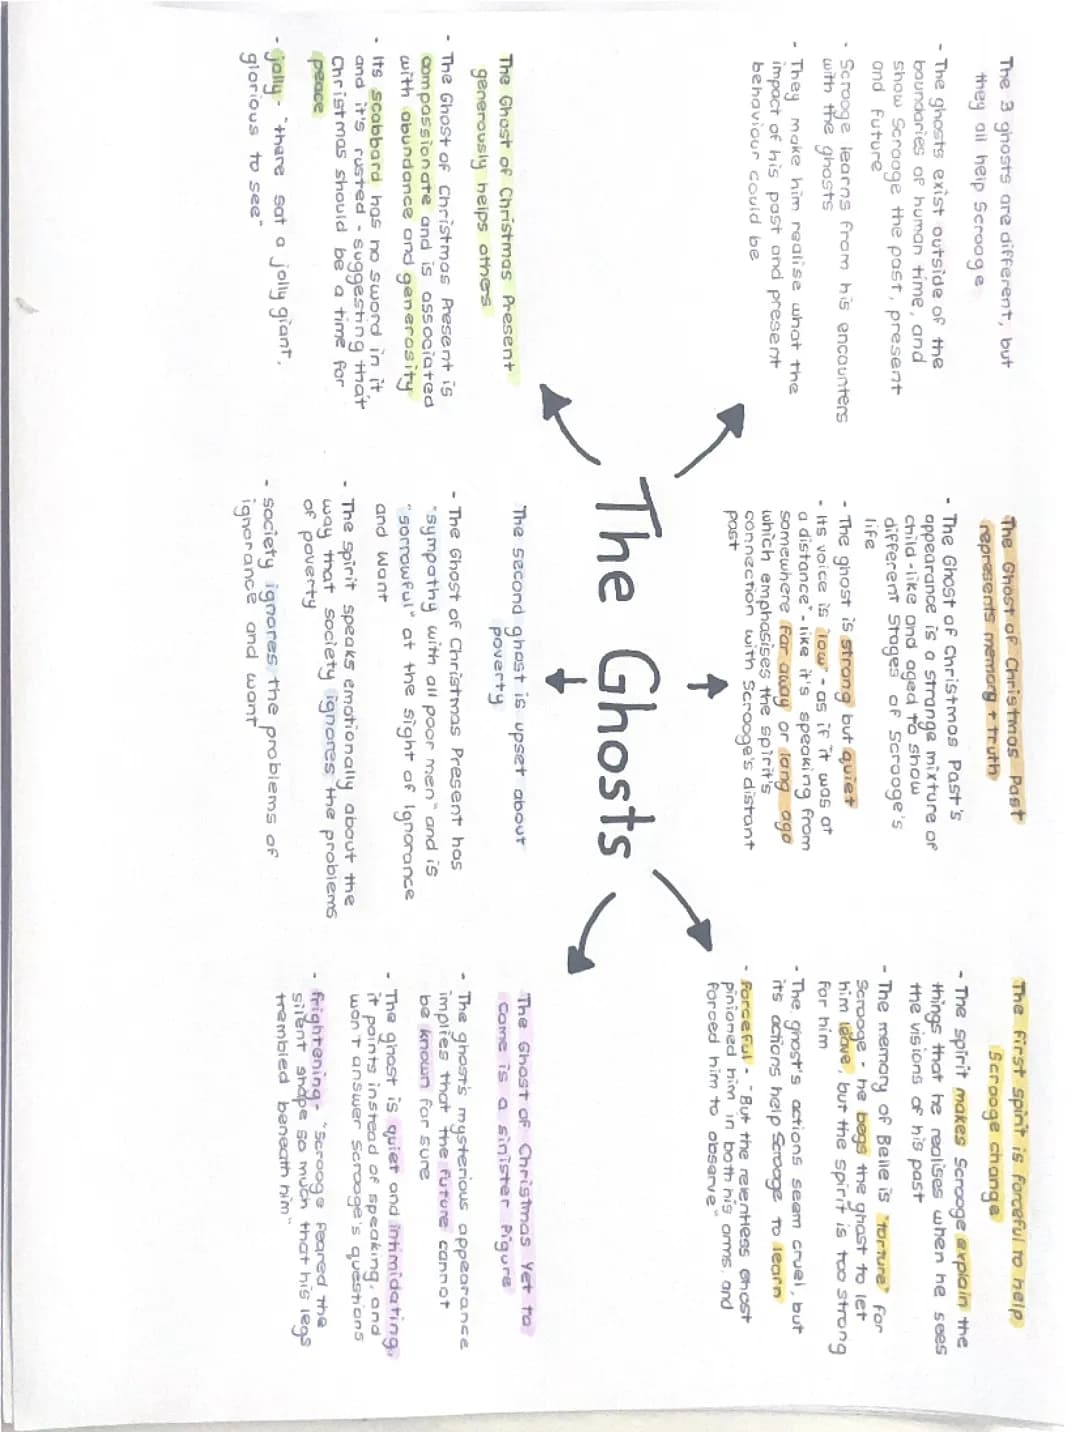 The 3 ghosts are different, but
they all help Scrooge
- The ghosts exist outside of the
boundaries of human time, and
show Scrooge the past, present
and future
- Scrooge learns from his encounters
with the ghosts
- They make him realise what the
impact of his past and present
behaviour could be
The Ghost of Christmas Past
represents memory + truth
- The Ghost of Christmas Past's
appearance is a strange mixture of
child-like and aged to show
different stages of Scrooge's
life
- The ghost is strong but quiet
- Its voice is "low" - as if it was at
a distance" - like it's speaking from
somewhere far away or long ago
which emphasises the spirit's
connection with Scrooge's distant
past
The first spirit is forceful to help
Scrooge change
- The spirit makes Scrooge explain the
things that he realises when he sees
the visions of his past
- The memory of Belle is "torture" for
Scrooge - he begs the ghost to let
him leave, but the spirit is too strong
for him
- The ghost's actions seem cruel, but
its actions help Scrooge to learn
- forceful - "But the relentless Ghost
pinioned him in both his arms, and
forced him to observe"
The Ghosts
The Ghost of Christmas Present
generously helps others
- The Ghost of Christmas Present is
compassionate and is associated
with abundance and generosity
- Its scabbard has no sword in it
and it's rusted - suggesting that
Christmas should be a time for
peace
- jolly - "there sat a jolly giant,
glorious to see"
The second ghost is upset about
poverty
- The Ghost of Christmas Present has
"sympathy with all poor men" and is
"sorrowful" at the sight of Ignorance
and Want
- The spirit speaks emotionally about the
way that society ignores the problems
of poverty
- society ignores the problems of
ignorance and want
The Ghost of Christmas Yet to
Come is a sinister figure
- The ghost's mysterious appearance
implies that the future cannot
be known for sure
- The ghost is quiet and intimidating,
it points instead of speaking, and
won't answer Scrooge's questions
- frightening - "Scrooge feared the
silent shape so much that his legs
trembled beneath him"